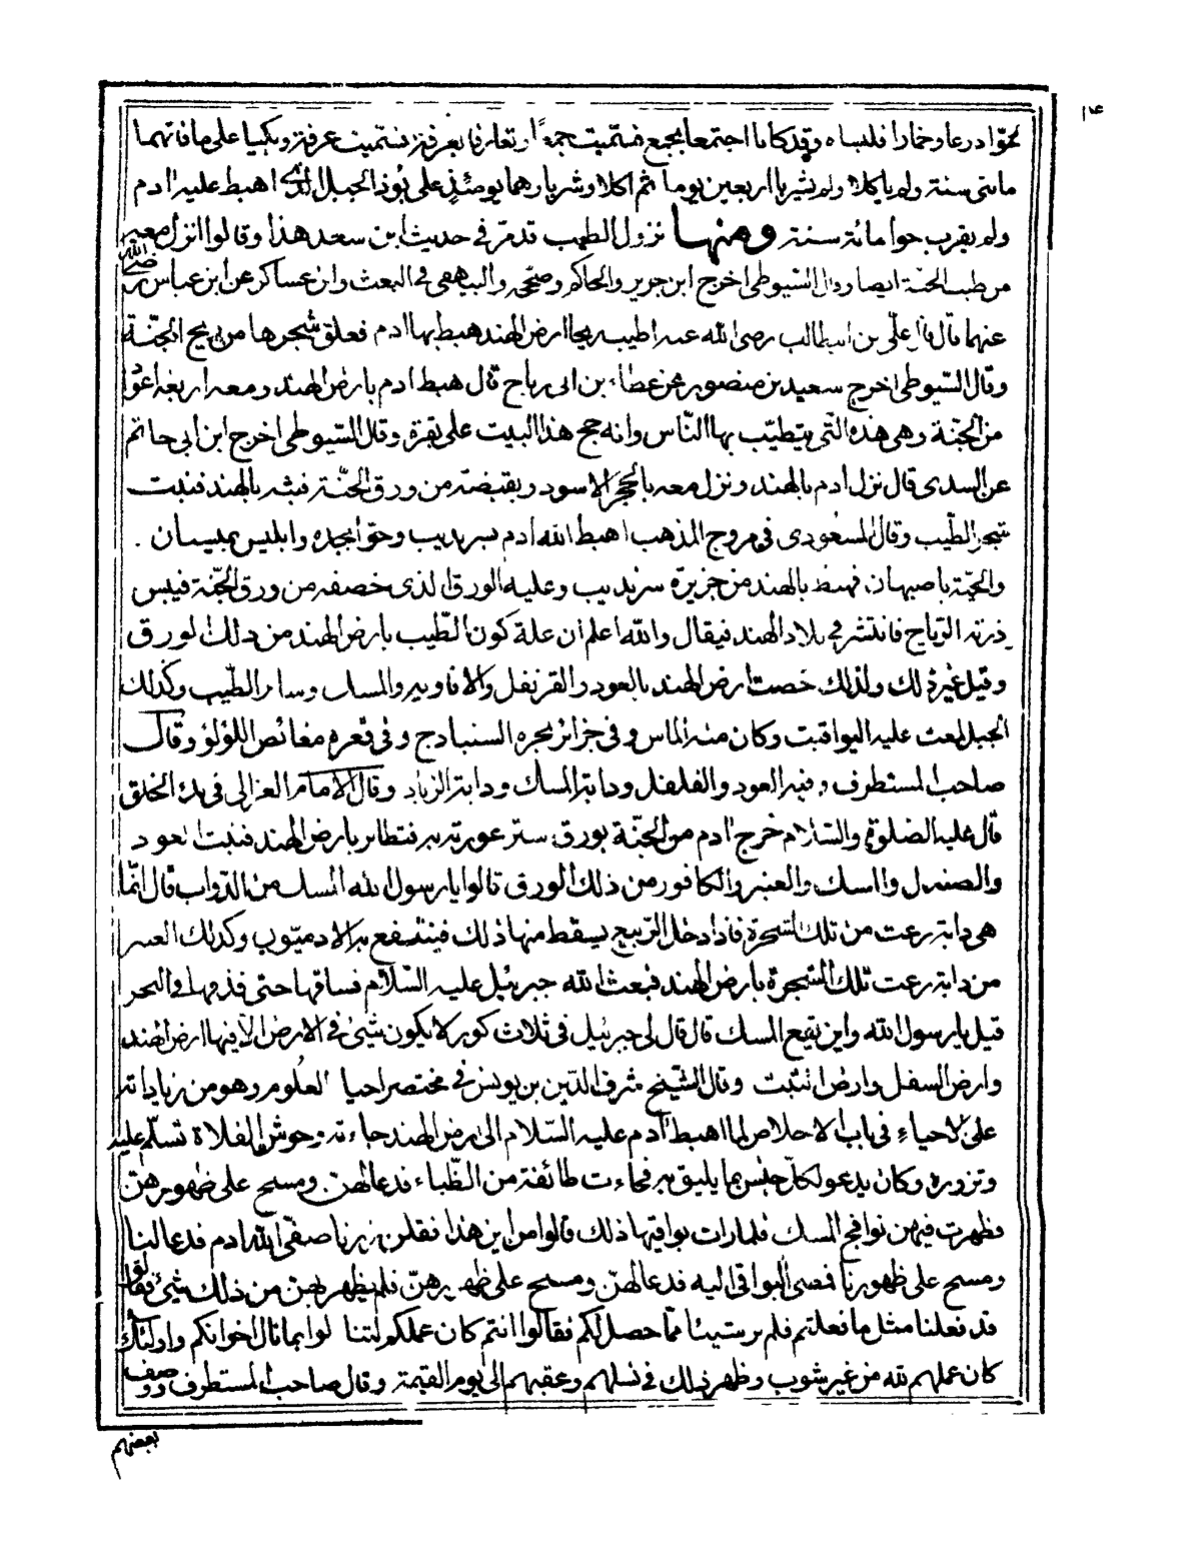 ١٤
لحوّا درعا وخمارا فلبساه وقد كانا اجتمعا بجمع فسمّيت جمعًا وتعارفا بعرفة فسمّيت عرفة وبكيا على ما فاتهما
مائتى سنة ولم ياكلا ولم يشربا اربعين يوما ثم اكلا وشربا وهما يومئذٍ على نُوذ الجبل الذى اهبط عليه ادم
ولم يقرب حوا مائة سنة ومنها نزول الطيب قد مرّ فى حديث ابن سعد هذا وقالوا انزل معه
من طيب الجنّة ايضا وقال السّيوطى اخرج ابن جرير والحاكم وصحّحه والبيهقى فى البعث وابن عساكر عن ابن عباس رضى الله
عنهما قال قال علىّ بن ابيطالب رضى الله عنه اطيب ريحا ارض الهند هبط بها ادم فعلق شجرها من ريح الجنّة
وقال السّيوطى اخرج سعيد بن منصور عن عطاء بن ابى رباح قال هبط ادم بارض الهند ومعه اربعة اعواد
من الجنّة وهى هذه الّتى يتطيّب بها النّاس وانه حج هذا البيت على بقرة وقال السّيوطى اخرج ابن ابى حاتم
عن السدى قال نزل ادم بالهند ونزل معه بالحجر الاسود وبقبضة من ورق الجنّة فبثه بالهند فنبتت
شجر الطّيب وقال المسعودى فى مروج الذهب اهبط الله ادم بسرنديب وحوّا بجده وابليس ببيسان .
والحيّة باصبهان فهبط بالهند من جزيرة سرنديب وعليه الورق الذى خصفه من ورق الجنّة فيبس
فذرته الرّياح فانتشر فى بلاد الهند فيقال والله اعلم ان علة كون الطّيب بارض الهند من ذلك الورق
وقيل غير ذلك ولذلك خصت ارض الهند بالعود والقرنفل والافاويه والمسك وسائر الطّيب وكذلك
الجبل لمعت عليه اليواقيت وكان منه الماس وفى جزائر بحره السنبادج وفى قعره مغائص اللؤلؤ وقال
صاحب المستطرف وفيه العود والفلفل ودابة المسك ودابة الزباد وقال الامام الغزالى فى بدء الخلق
قال عليه الصّلوة والسّلام خرج ادم من الجنّة بورق ستر عورته به فتطاير بارض الهند فنبت العود
والصندل والمسك والعنبر والكافور من ذلك الورق قالوا يا رسول الله المسك من الدّواب قال انّما
هى دابة رعت من تلك الشجرة فاذا دخل الرّبيع يسقط منها ذلك فينتفع به الادميّون وكذلك العنبر
من دابة رعت تلك الشجرة بارض الهند فبعث الله جبرئيل عليه السّلام فساقها حتى قذفها فى البحر
قيل يا رسول الله واين يقع المسك قال قال لى جبرئيل فى ثلاث كور لا يكون شئ فى الارض الا فيها ارض الهند
وارض السفل وارض التبت وقال الشّيخ شرف الدّين بن يونس فى مختصر احيا العُلوم وهو من زياداته
على الاحياء فى باب الاخلاص لما اهبط ادم عليه السّلام الى ارض الهند جاءته وحوش الفلاة تسلّم عليه
وتزوره وكان يدعو لكلّ جنس بما يليق به فجاءت طائفة من الظّباء فدعا لهنّ ومسح على ظهورهنّ
فظهرت فيهن نوافج المسك فلما رات بواقيها ذلك قالوا من اين هذا فقلن زرنا صفىّ الله ادم فدعا لنا
ومسح على ظهورنا فمضى البواقى اليه فدعا لهنّ ومسح على ظهورهنّ فلم يظهر لهنّ من ذلك شئ فقالوا
قد فعلنا مثل ما فعلتم فلم نر شيئا ممّا حصل لكم فقالوا انتم كان عملكم لتنالوا بما نال اخوانكم واولئك
كان عملهم لله من غير شوب وظهر ذلك فى نسلهم وعقبهم الى يوم القيمة وقال صاحب المستطرف ووصف
بعضهم